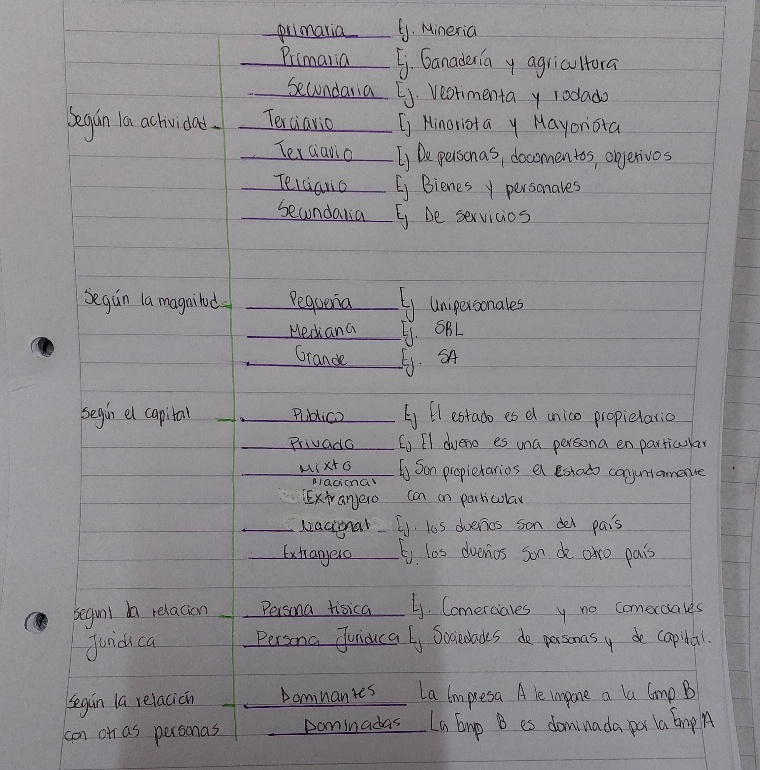 primaria Ej. Minería
Primaria Ej. Ganadería y agricultura
Secundaria Ej. Vestimenta y rodado
Según la actividad Terciario Ej Minorista y Mayorista
Terciario Ej De personas, documentos, objetivos
Terciario Ej Bienes y personales
Secundaria Ej De servicios
Según la magnitud Pequeña Ej Unipersonales
Mediana Ej. SRL
Grande Ej. SA
Según el capital Publico Ej El estado es el unico propietario
Privado Ej El dueno es una persona en particular
Mixto Ej Son propietarios el Estado conjuntamente
Nacional
Extranjero con un particular
Nacional Ej. los dueños son del país
Extranjero Ej. los dueños son de otro país
Segun la relacion Persona fisica Ej. Comerciales y no comerciales
Juridica Persona Juridica Ej Sociedades de personas y de capital.
Según la relación Dominantes La Empresa A le impone a la Emp B
con otras personas Dominadas La Emp B es dominada por la Emp A